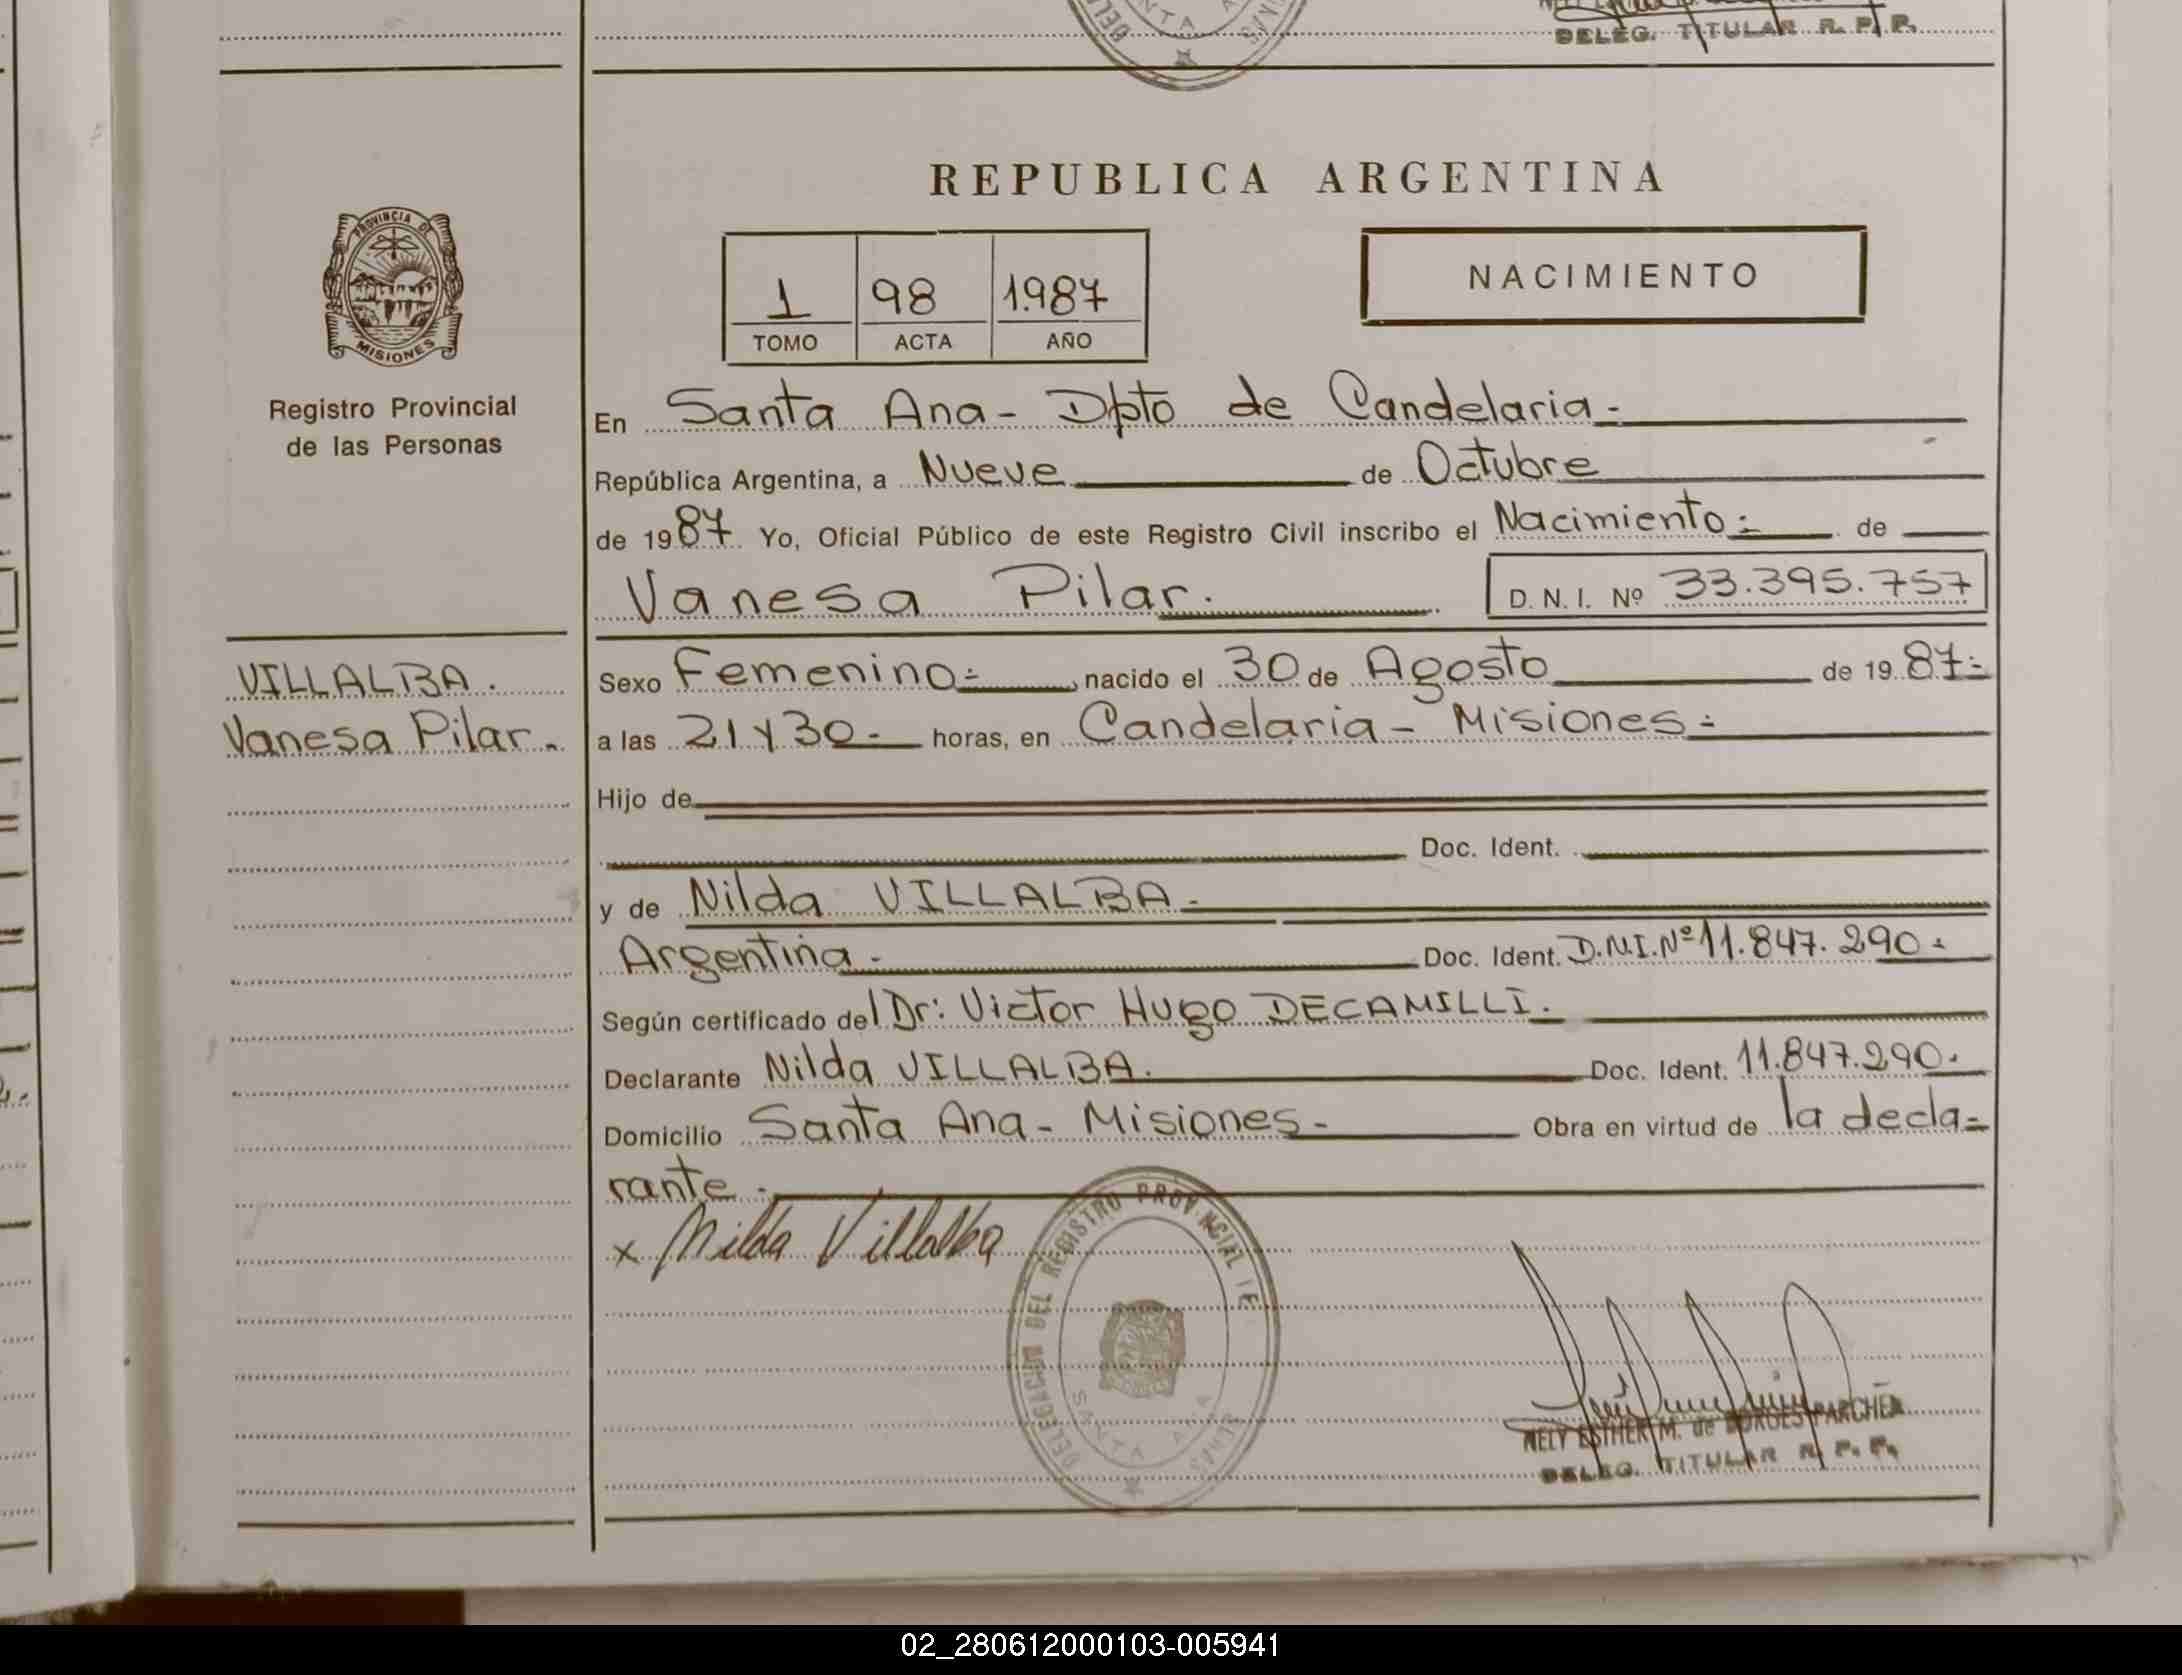 DELEG. TITULAR R. P. P.
SANTA
REPUBLICA ARGENTINA
PROVINCIA DE
MISIONES
Registro Provincial
de las Personas
1 98 1.987
TOMO ACTA AÑO
NACIMIENTO
En Santa Ana - Dpto de Candelaria.-
República Argentina, a Nueve de Octubre
de 1987. Yo, Oficial Público de este Registro Civil inscribo el Nacimiento.- de
Vanesa Pilar. D. N. I. Nº 33.395.757
VILLALBA.
Vanesa Pilar.
Sexo Femenino.- nacido el 30 de Agosto de 1987.-
a las 21 y 30.- horas, en Candelaria - Misiones.-
Hijo de
Doc. Ident.
y de Nilda VILLALBA.-
Argentina.- Doc. Ident. D.N.I.Nº 11.847.290.-
Según certificado del Dr: Victor Hugo DECAMILLI.-
Declarante Nilda VILLALBA. Doc. Ident. 11.847.290.-
Domicilio Santa Ana - Misiones.- Obra en virtud de la decla-
rante.-
x Nilda Villalba
DELEGACION DEL REGISTRO PROVINCIAL DE
SANTA ANA
NELY ESTHER M. de BORGES PARCHEN
DELEG. TITULAR R. P. P.
02_280612000103-005941